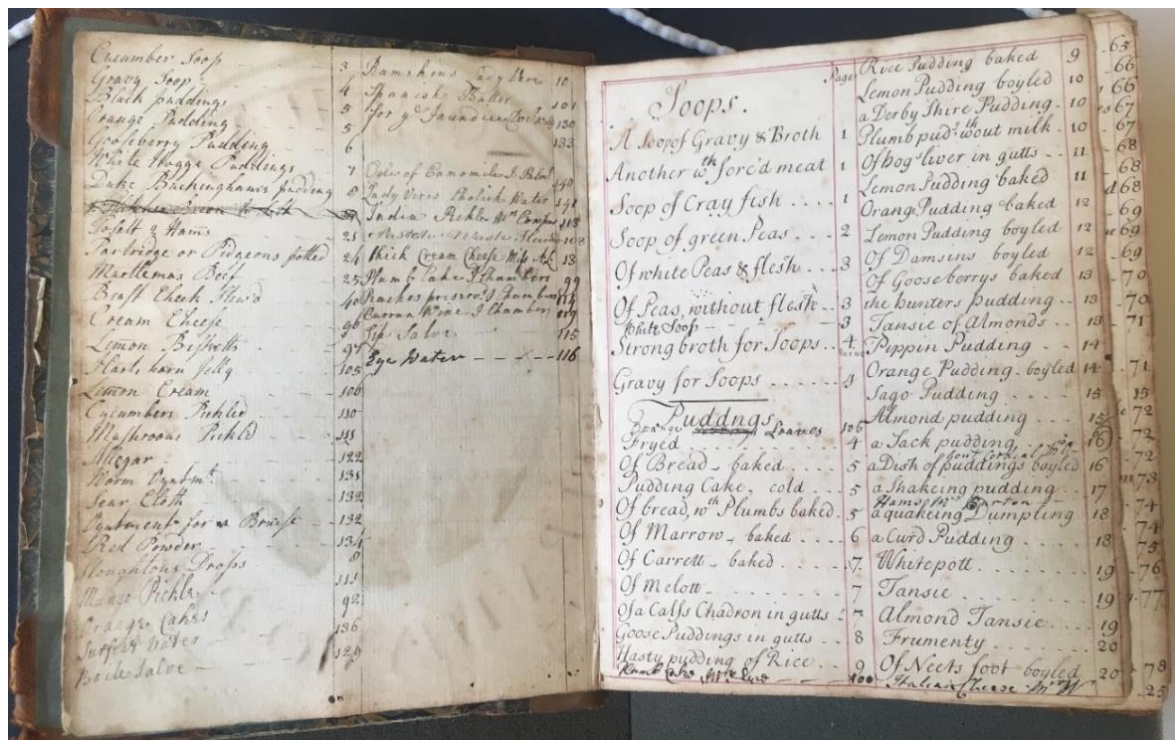 Cucumber Soop 3
Gravy Soop 4
Black puddings 5
Orange Pudding 5
Gooseberry Pudding 6
White Hoggs Puddings 7
Duke Buckinghams pudding 8
To salt 2 Hams 21
Partridge or Pidgeons potted 24
Martlemas Beef 25
Beast Cheek Stew'd 40
Cream Cheese 96
Lemon Bisketts 97
Harts horn Jelly 105
Lemon Cream 106
Cucumbers Pickled 110
Mushrooms Pickld 111
Allegar 122
Worm Oyntmt. 131
Sear Cloth 132
Oyntment for a Bruise 132
Red Powder 134
Stoughtons Drops
Mango Pickle 111
Orange Cakes 92
Surfeit Water 136
Boile Salve 129
Ramskins Lady Vere 10
Spanish Butter 101
for ye Jaundice 130
133
Oyle of Camomile
Lady Veres Water 141
India Pickle Mrs 113
108
thick Cream Cheese Miss 13
Plumb Cake J Chambers 99
Peaches preserv'd Chambers 114
Curran Wine J Chambers 119
Lip Salve 115
Eye Water 116
Page
Soops.
A Soop of Gravy & Broth 1
Another wth forc'd meat 1
Soop of Cray fish 1
Soop of green Peas 2
Of white Peas & flesh 3
Of Peas, without flesh 3
White Soop 3
Strong broth for Soops 4
Gravy for Soops 4
Puddngs
Loaves 106
Fryed 4
Of Bread baked 5
Pudding Cake cold 5
Of bread, wth Plumbs baked 5
Of Marrow baked 6
Of Carrett baked 7
Of Melott 7
Of a Calfs Chadron in gutts 7
Goose Puddings in gutts 8
Hasty pudding of Rice 9
Plumb Cake Mrs 100
Rice Pudding baked 9
Lemon Pudding boyled 10
a Derby Shire Pudding 10
Plumb pud: wthout milk 10
Of hogs liver in gutts 11
Lemon Pudding baked 11
Orange Pudding baked 12
Lemon Pudding boyled 12
Of Damsins boyled 12
Of Gooseberrys baked 13
the hunters pudding 13
Tansie of Almonds 13
Pippin Pudding 14
Orange Pudding boyled 14
Sago Pudding 15
Almond pudding 15
a Sack pudding 16
a Dish of puddings boyled 16
a Shakeing pudding 17
Hams Mrs
a quakeing Dumpling 18
a Curd Pudding 18
Whitepott 19
Tansie 19
Almond Tansie 19
Frumenty 20
Of Neets foot boyled 20
Italian Cheese Mrs
65
66
66
67
67
68
68
68
69
69
69
70
70
71
71
15
72
72
72
73
74
74
75
76
77
78
25